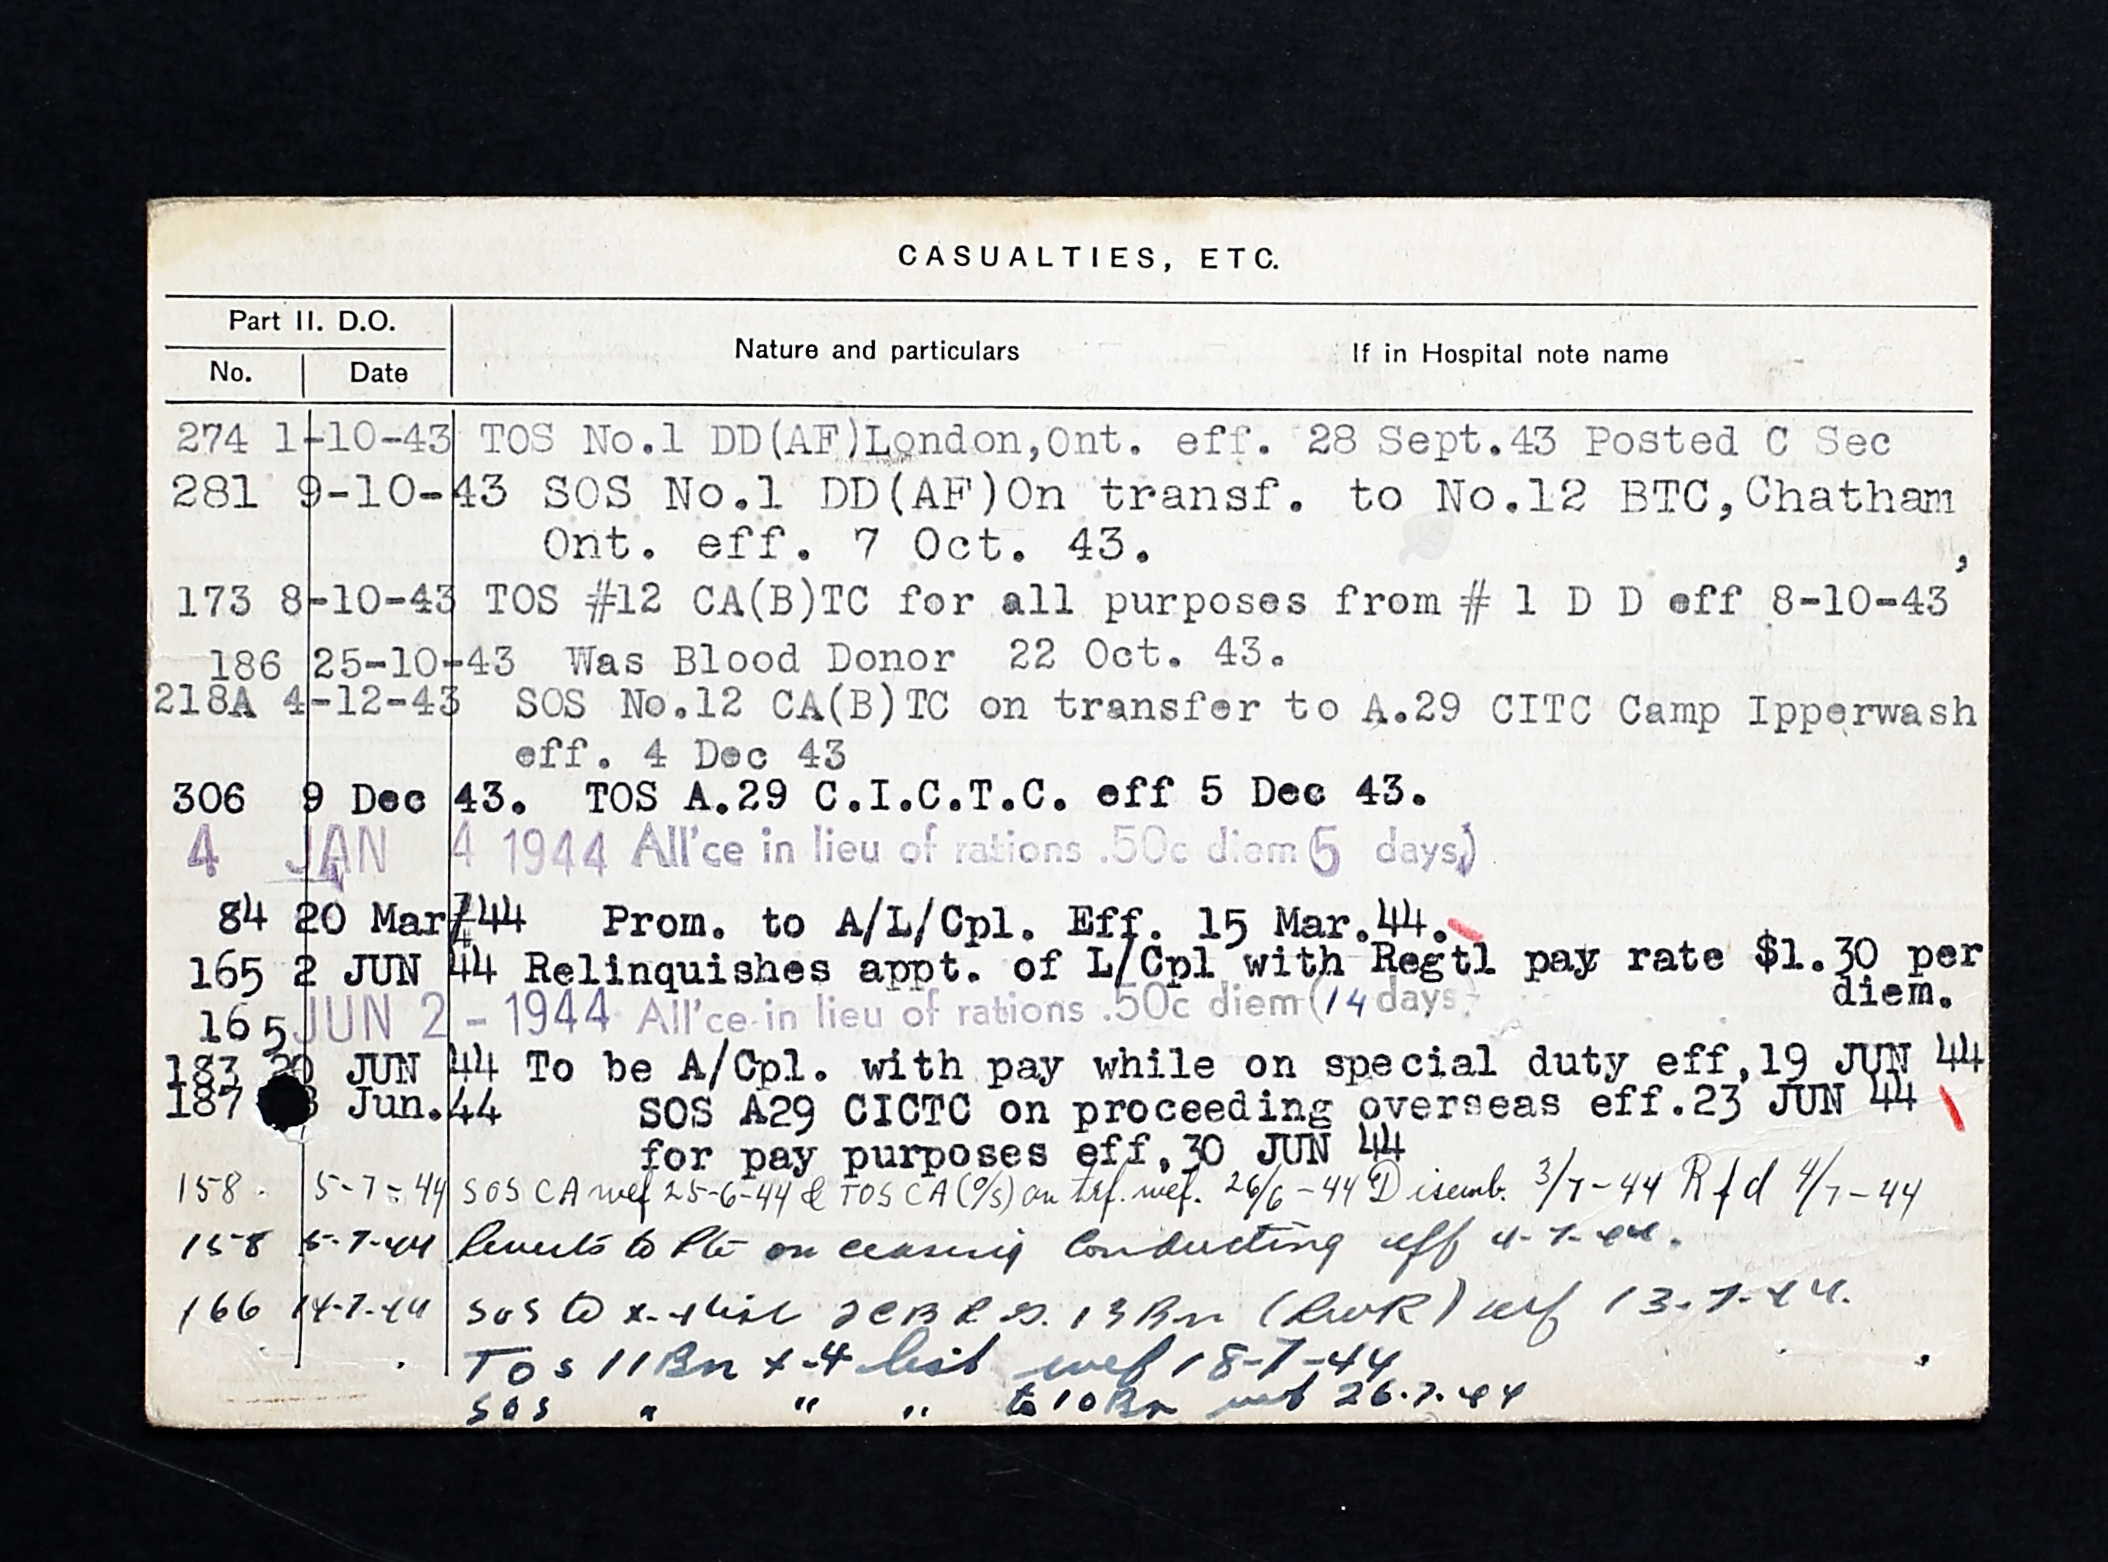 CASUALTIES, ETC.
Part II. D.O.
Nature and particulars If in Hospital note name
No. Date
274 1-10-43 TOS No.1 DD(AF)London,Ont. eff. 28 Sept.43 Posted C Sec
281 9-10-43 SOS No.1 DD(AF)On transf. to No.12 BTC,Chatham
Ont. eff. 7 Oct. 43.
173 8-10-43 TOS #12 CA(B)TC for all purposes from # 1 D D eff 8-10-43
186 25-10-43 Was Blood Donor 22 Oct. 43.
218A 4-12-43 SOS No.12 CA(B)TC on transfer to A.29 CITC Camp Ipperwash
eff. 4 Dec 43
306 9 Dec 43. TOS A.29 C.I.C.T.C. eff 5 Dec 43.
4 JAN 4 1944 All'ce in lieu of rations .50c diem (5 days)
84 20 Mar/44 Prom. to A/L/Cpl. Eff. 15 Mar.44.
165 2 JUN 44 Relinquishes appt. of L/Cpl with Regtl pay rate $1.30 per
diem.
165 JUN 2 - 1944 All'ce in lieu of rations .50c diem (14 days)
183 20 JUN 44 To be A/Cpl. with pay while on special duty eff,19 JUN 44
187 3 Jun.44 SOS A29 CICTC on proceeding overseas eff.23 JUN 44
for pay purposes eff,30 JUN 44
158. 5-7-44 SOS CA wef 25-6-44 & TOS CA(O/S) on trf. wef. 26/6-44 Disemb. 3/7-44 Rfd 4/7-44
158 5-7-44 Reverts to Pte on ceasing Conducting eff 4-7-44.
166 14-7-44 SOS to x-4 list 2 CBRG. 13 Bn (RWR) wef 13-7-44.
TOS 11 Bn x-4 list wef 18-7-44
SOS " " " to 10 Bn wef 26.7.44